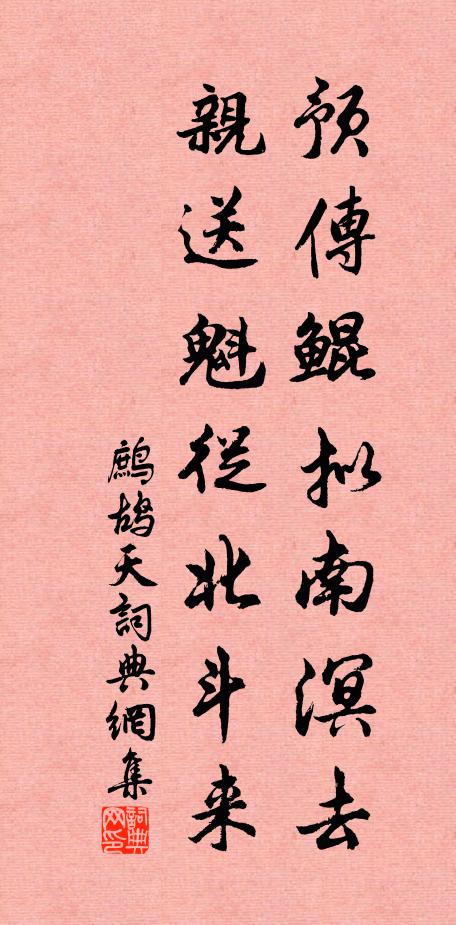 預傳鯤拟南溟去
親送魁從北斗来
鷓鴣天詞典網集
詞典网印